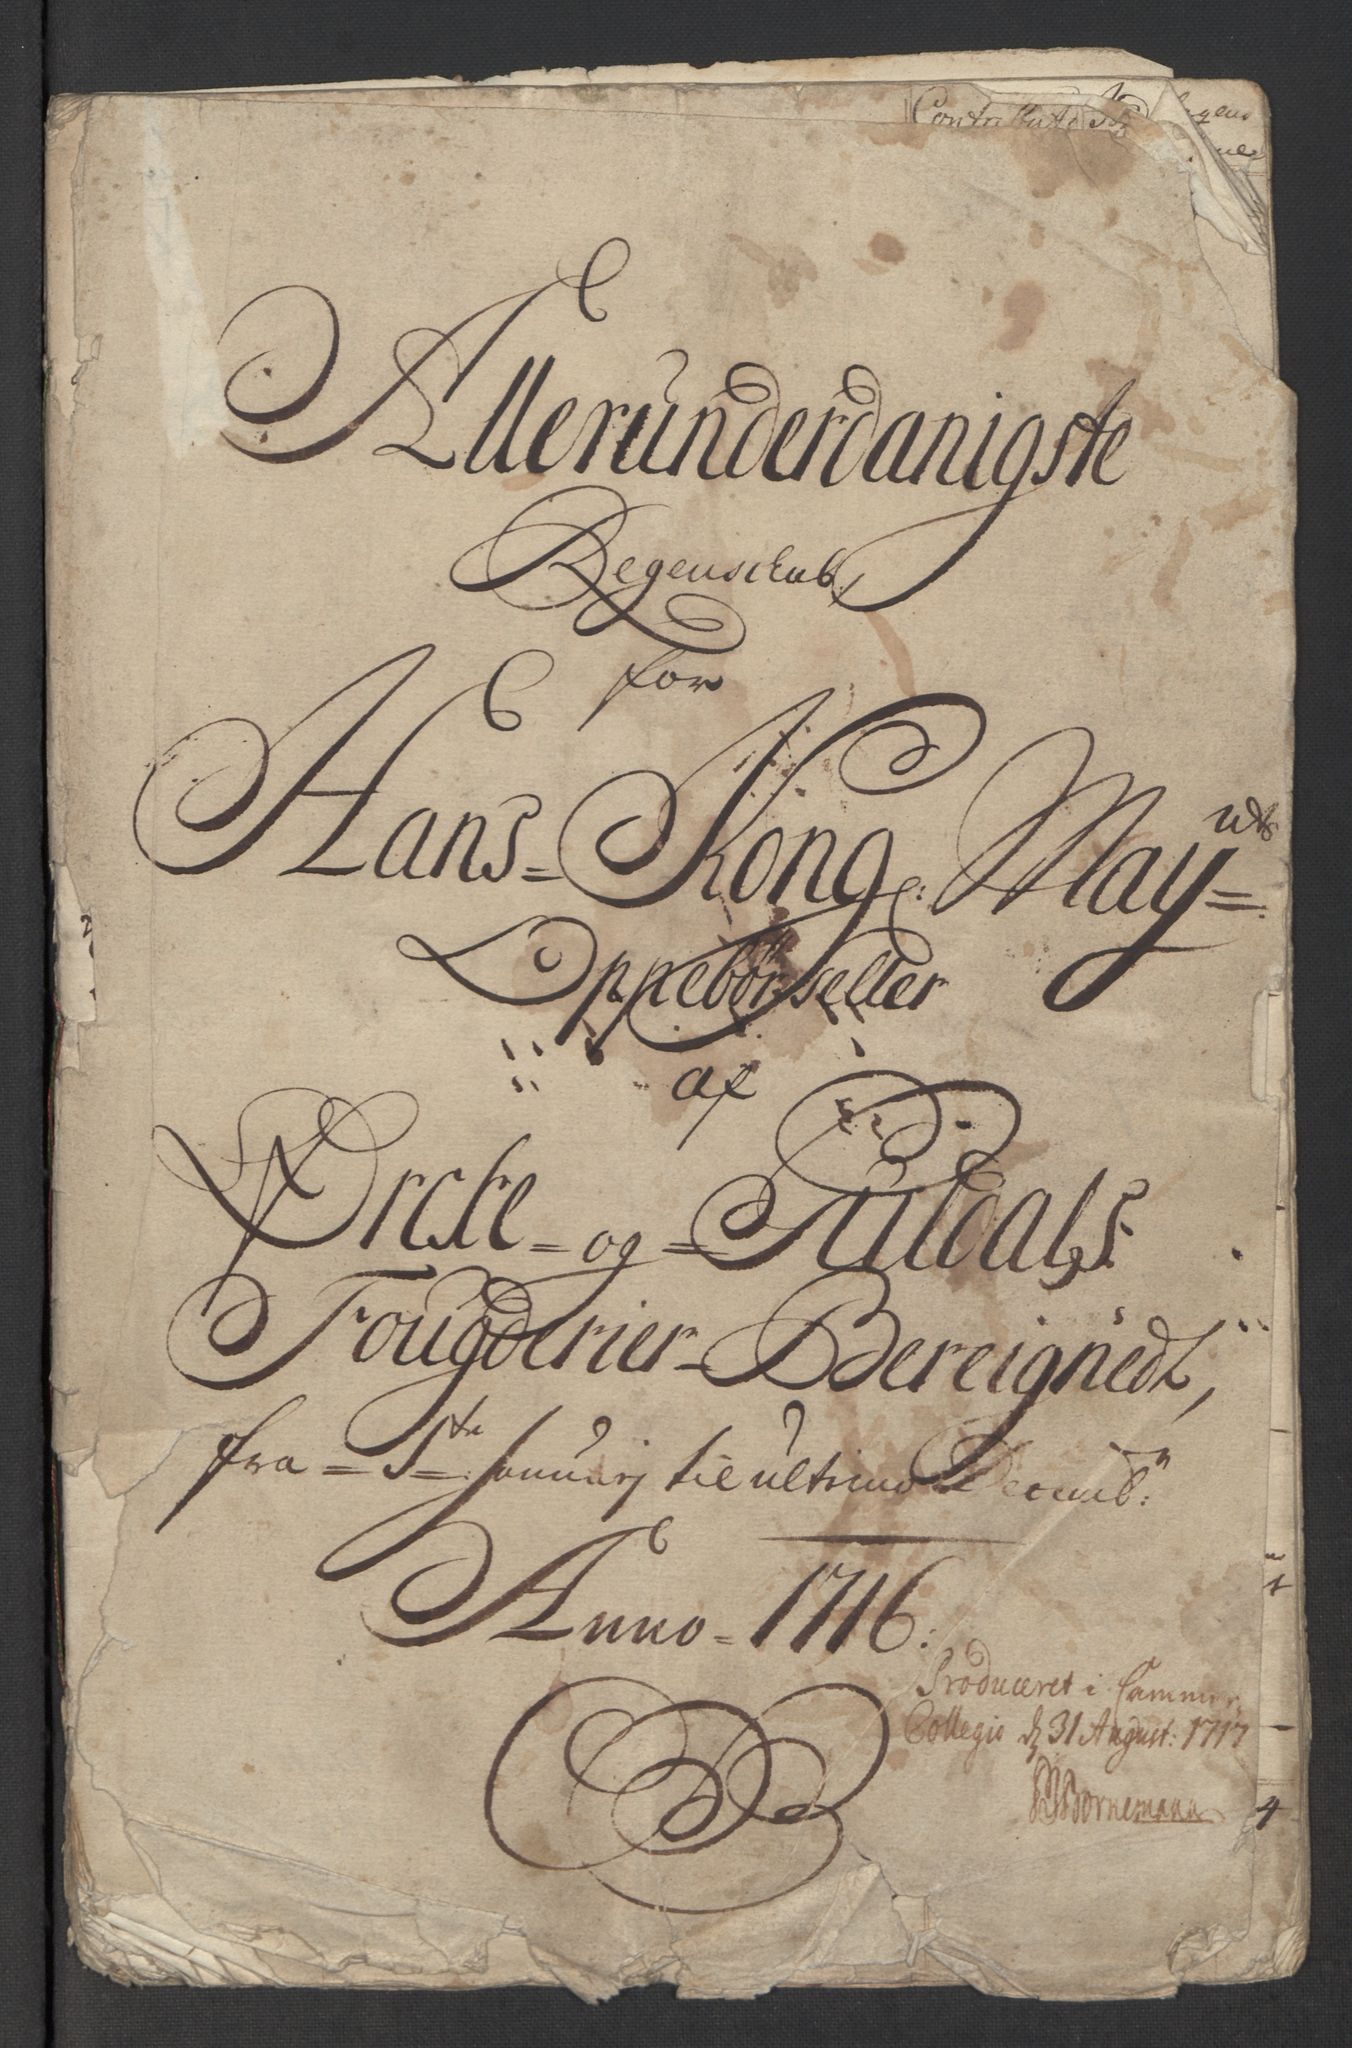 Contribut
Allerunderdanigste
Regenskab,
for
Hans= Kong: May=ts
Oppebørseller
af
Orcke= og= Guldals
Fougderier= Bereignedt,
fra= 1te= January til ultimo Decemb:r
Anno= 1716:
Produceret i Cammer
Collegio d 31 August: 1717
Bornemann
4